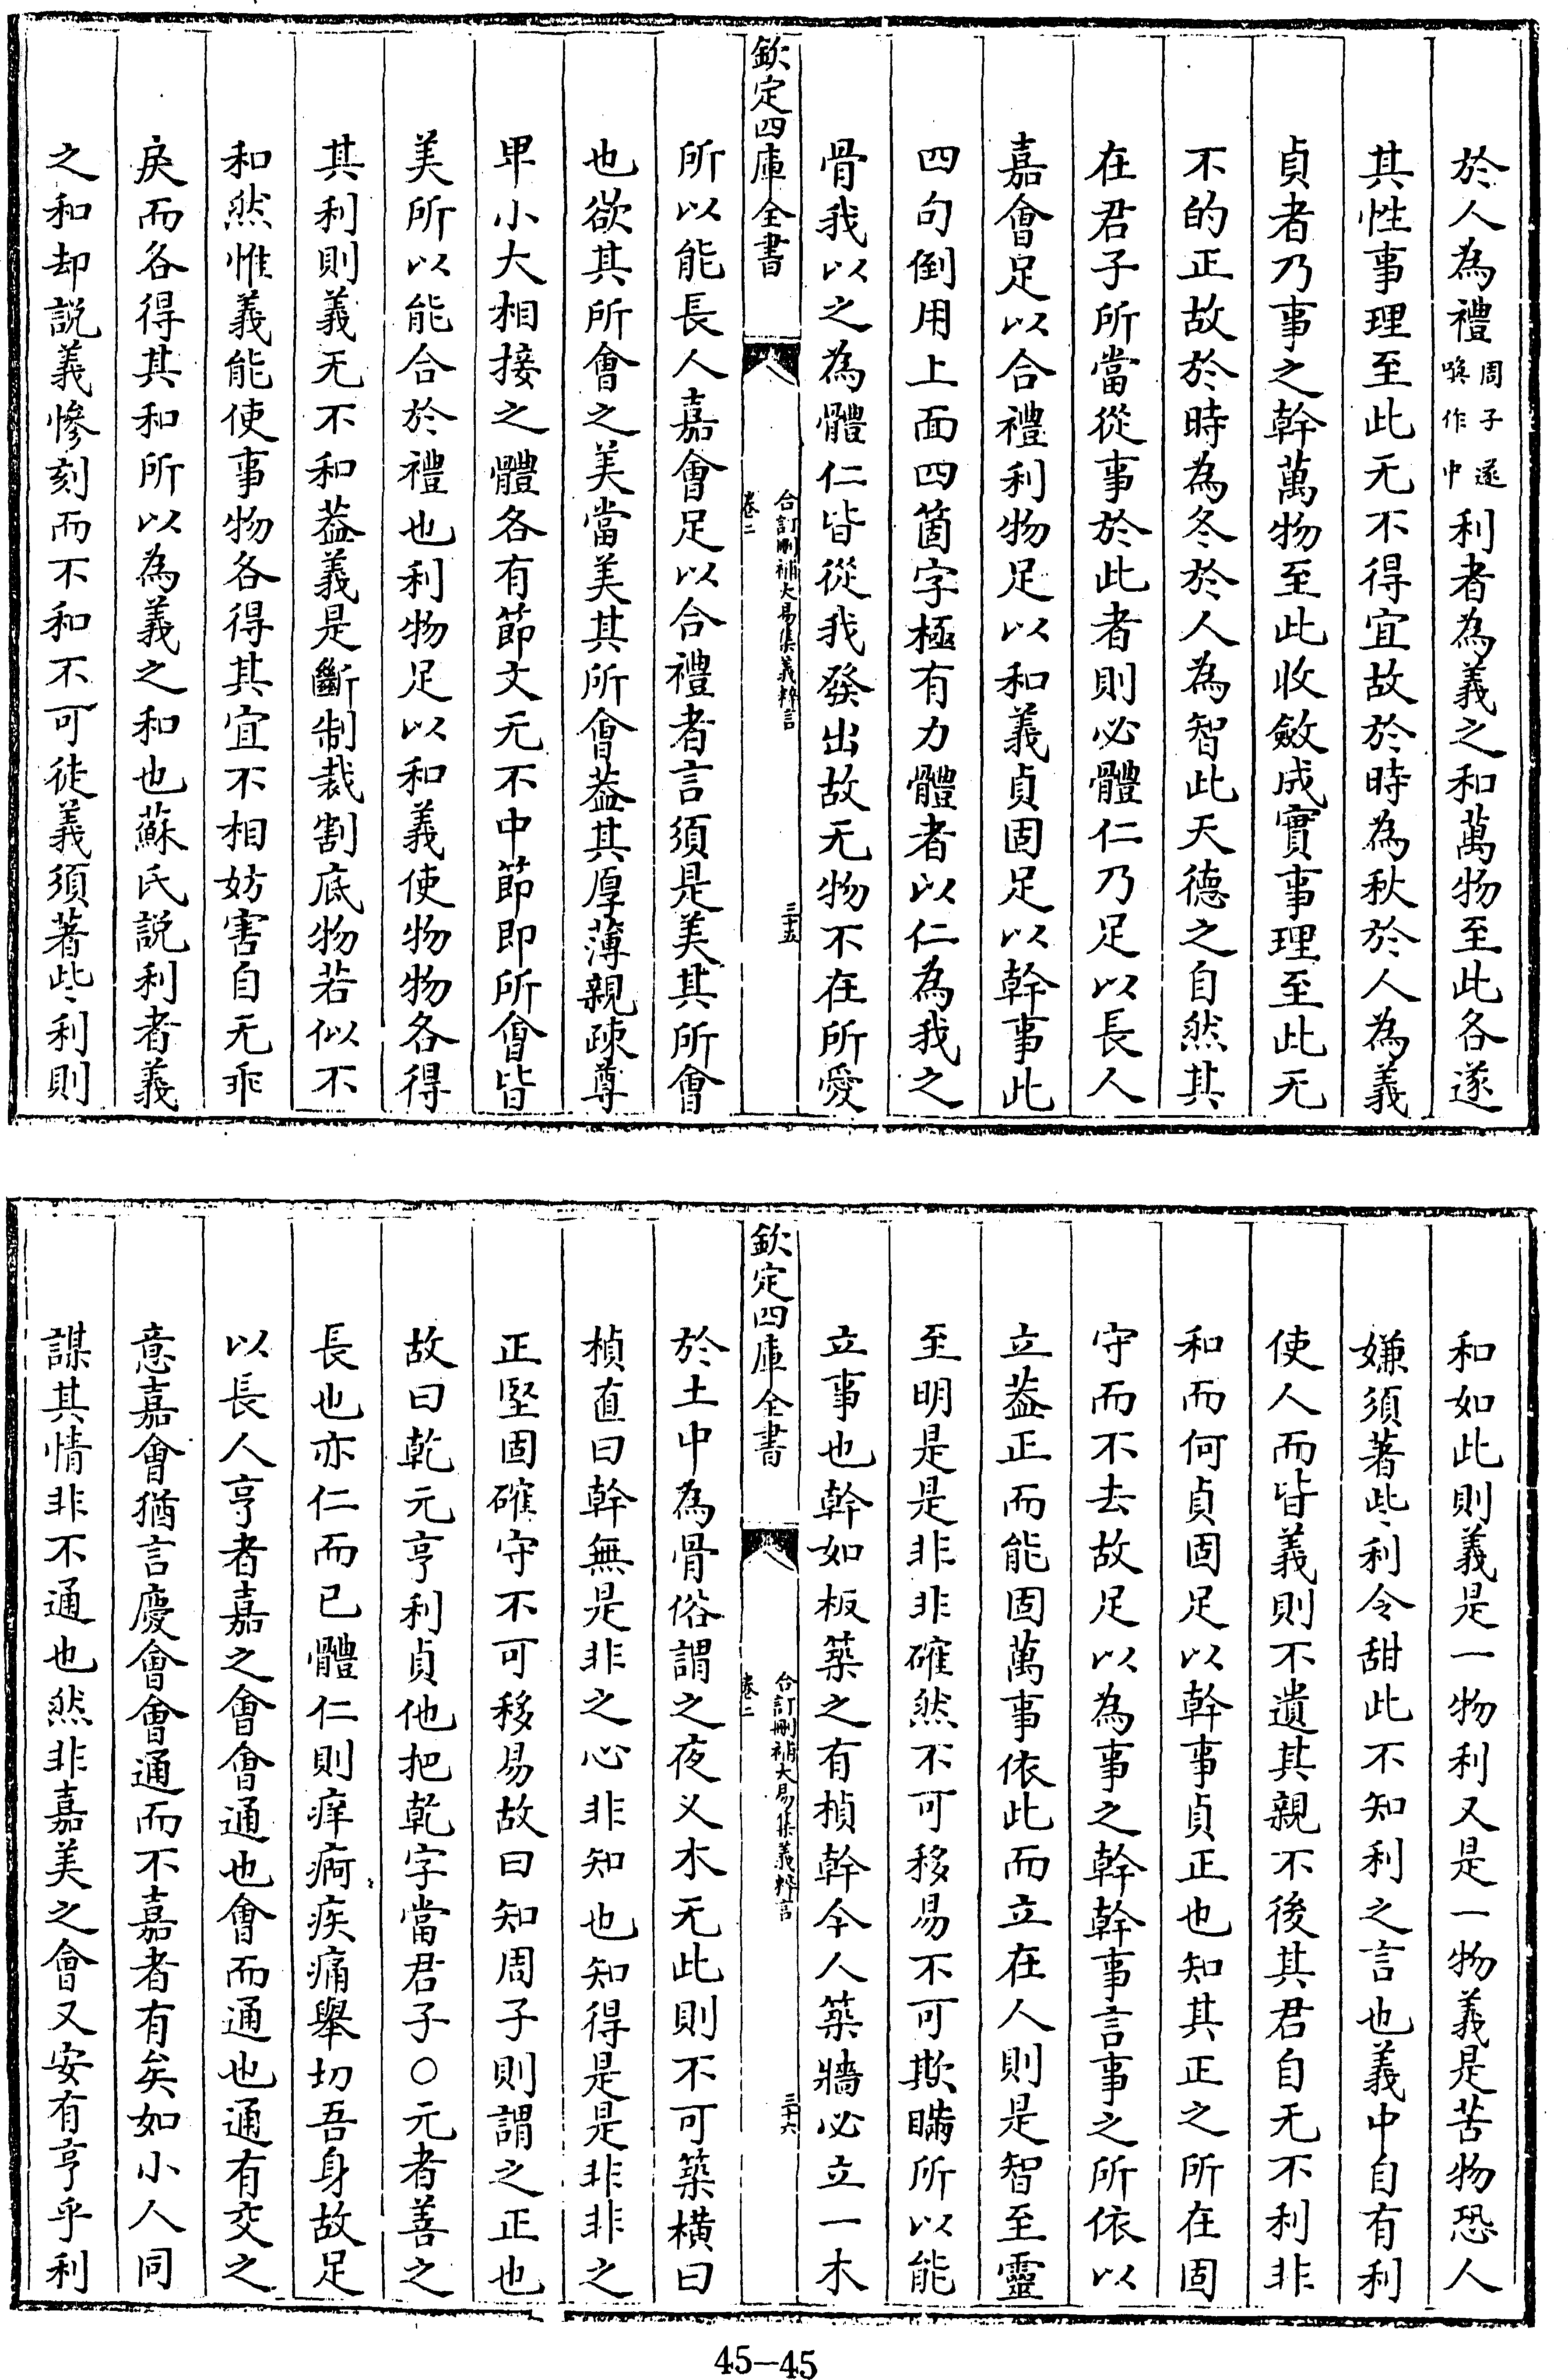 於人為禮周子遂喚作中利者為義之和萬物至此各遂
其性事理至此无不得宜故於時為秋於人為義
貞者乃事之幹萬物至此收斂成實事理至此无
不的正故於時為冬於人為智此天德之自然其
在君子所當從事於此者則必體仁乃足以長人
嘉會足以合禮利物足以和義貞固足以幹事此
四句倒用上面四箇字極有力體者以仁為我之
骨我以之為體仁皆從我發出故无物不在所愛
欽定四庫全書
合訂刪補大易集義粹言
卷二
三十五
所以能長人嘉會足以合禮者言須是美其所會
也欲其所會之美當美其所會葢其厚薄親疎尊
卑小大相接之體各有節文无不中節即所會皆
美所以能合於禮也利物足以和義使物物各得
其利則義无不和葢義是斷制裁割底物若似不
和然惟義能使事物各得其宜不相妨害自无乖
戾而各得其和所以為義之和也蘇氏說利者義
之和却說義慘刻而不和不可徒義須著些利則
和如此則義是一物利又是一物義是苦物恐人
嫌須著些利令甜此不知利之言也義中自有利
使人而皆義則不遺其親不後其君自无不利非
和而何貞固足以幹事貞正也知其正之所在固
守而不去故足以為事之幹幹事言事之所依以
立葢正而能固萬事依此而立在人則是智至靈
至明是是非非確然不可移易不可欺瞞所以能
立事也幹如板築之有楨幹今人築牆必立一木
欽定四庫全書
合訂刪補大易集義粹言
卷二
三十六
於土中為骨俗謂之夜乂木无此則不可築橫曰
楨直曰幹無是非之心非知也知得是是非非之
正堅固確守不可移易故曰知周子則謂之正也
故曰乾元亨利貞他把乾字當君子○元者善之
長也亦仁而已體仁則痒痾疾痛舉切吾身故足
以長人亨者嘉之會會通也會而通也通有交之
意嘉會猶言慶會會通而不嘉者有矣如小人同
謀其情非不通也然非嘉美之會又安有亨乎利
45-45